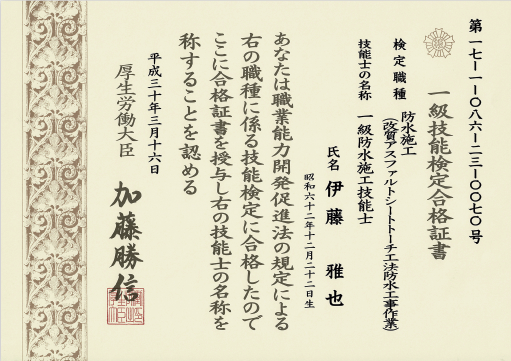 第一七―一―〇八六―二三―〇〇七〇号
一級技能検定合格証書
検定職種　防水施工
（改質アスファルトシートトーチ工法防水工事作業）
技能士の名称　一級防水施工技能士
氏名　伊藤　雅也
昭和六十二年十二月二十二日生
あなたは職業能力開発促進法の規定による
右の職種に係る技能検定に合格したので
ここに合格証書を授与し右の技能士の名称を
称することを認める
平成三十年三月十六日
厚生労働大臣　加藤勝信